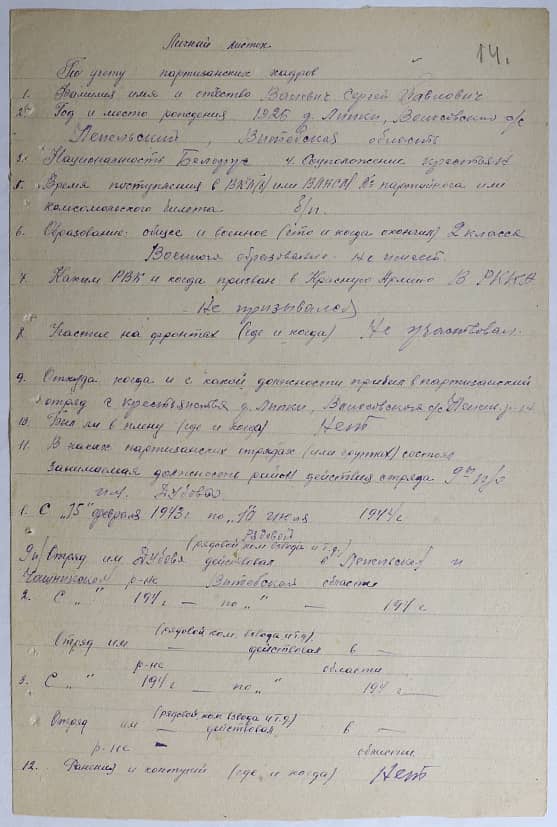 Личный листок
14.
По учету партизанских кадров
1. Фамилия имя и отчество Сергей Павлович
2. Год и место рождения 1926 д. Липки, с/с
Лепельский, Витебская область
3. Национальность Белорус 4. Соцположение крестьян
5. Время поступления в ВКП(б) или ВЛКСМ № партийного или
комсомольского билета б/п.
6. Образование: общее и военное (что и когда окончил) 2 класса
Военного образования - не имеет.
7. Каким РВК и когда призван в Красную Армию В РККА
- Не призывался
8. Участие на фронтах (где и когда) Не участвовал.
9. Откуда, когда и с какой должности прибыл в партизанский
отряд с крестьянства д. Липки, с/с
10. Был ли в плену (где и когда) Нет
11. В каких партизанских отрядах (или группах) состоял
занимаемая должность район действия отряда 9ый п/о
им. Дубова
1. С "15" февраля 1943г по "10" июня 1944г
Рядовой
(рядовой ком. взвода и т.д.)
Отряд им Дубова действовал в и
Чашникском р-не Витебской области
2. С " " 194 г — по " — 194 г.
(рядовой ком. взвода и т.д)
Отряд им — действовал в —
р-не области
3. С " " 194 г — по " 194 г —
(рядовой ком взвода и т.д)
Отряд им — действовал в —
р-не — области
12. Ранения и контузий (где и когда) Нет